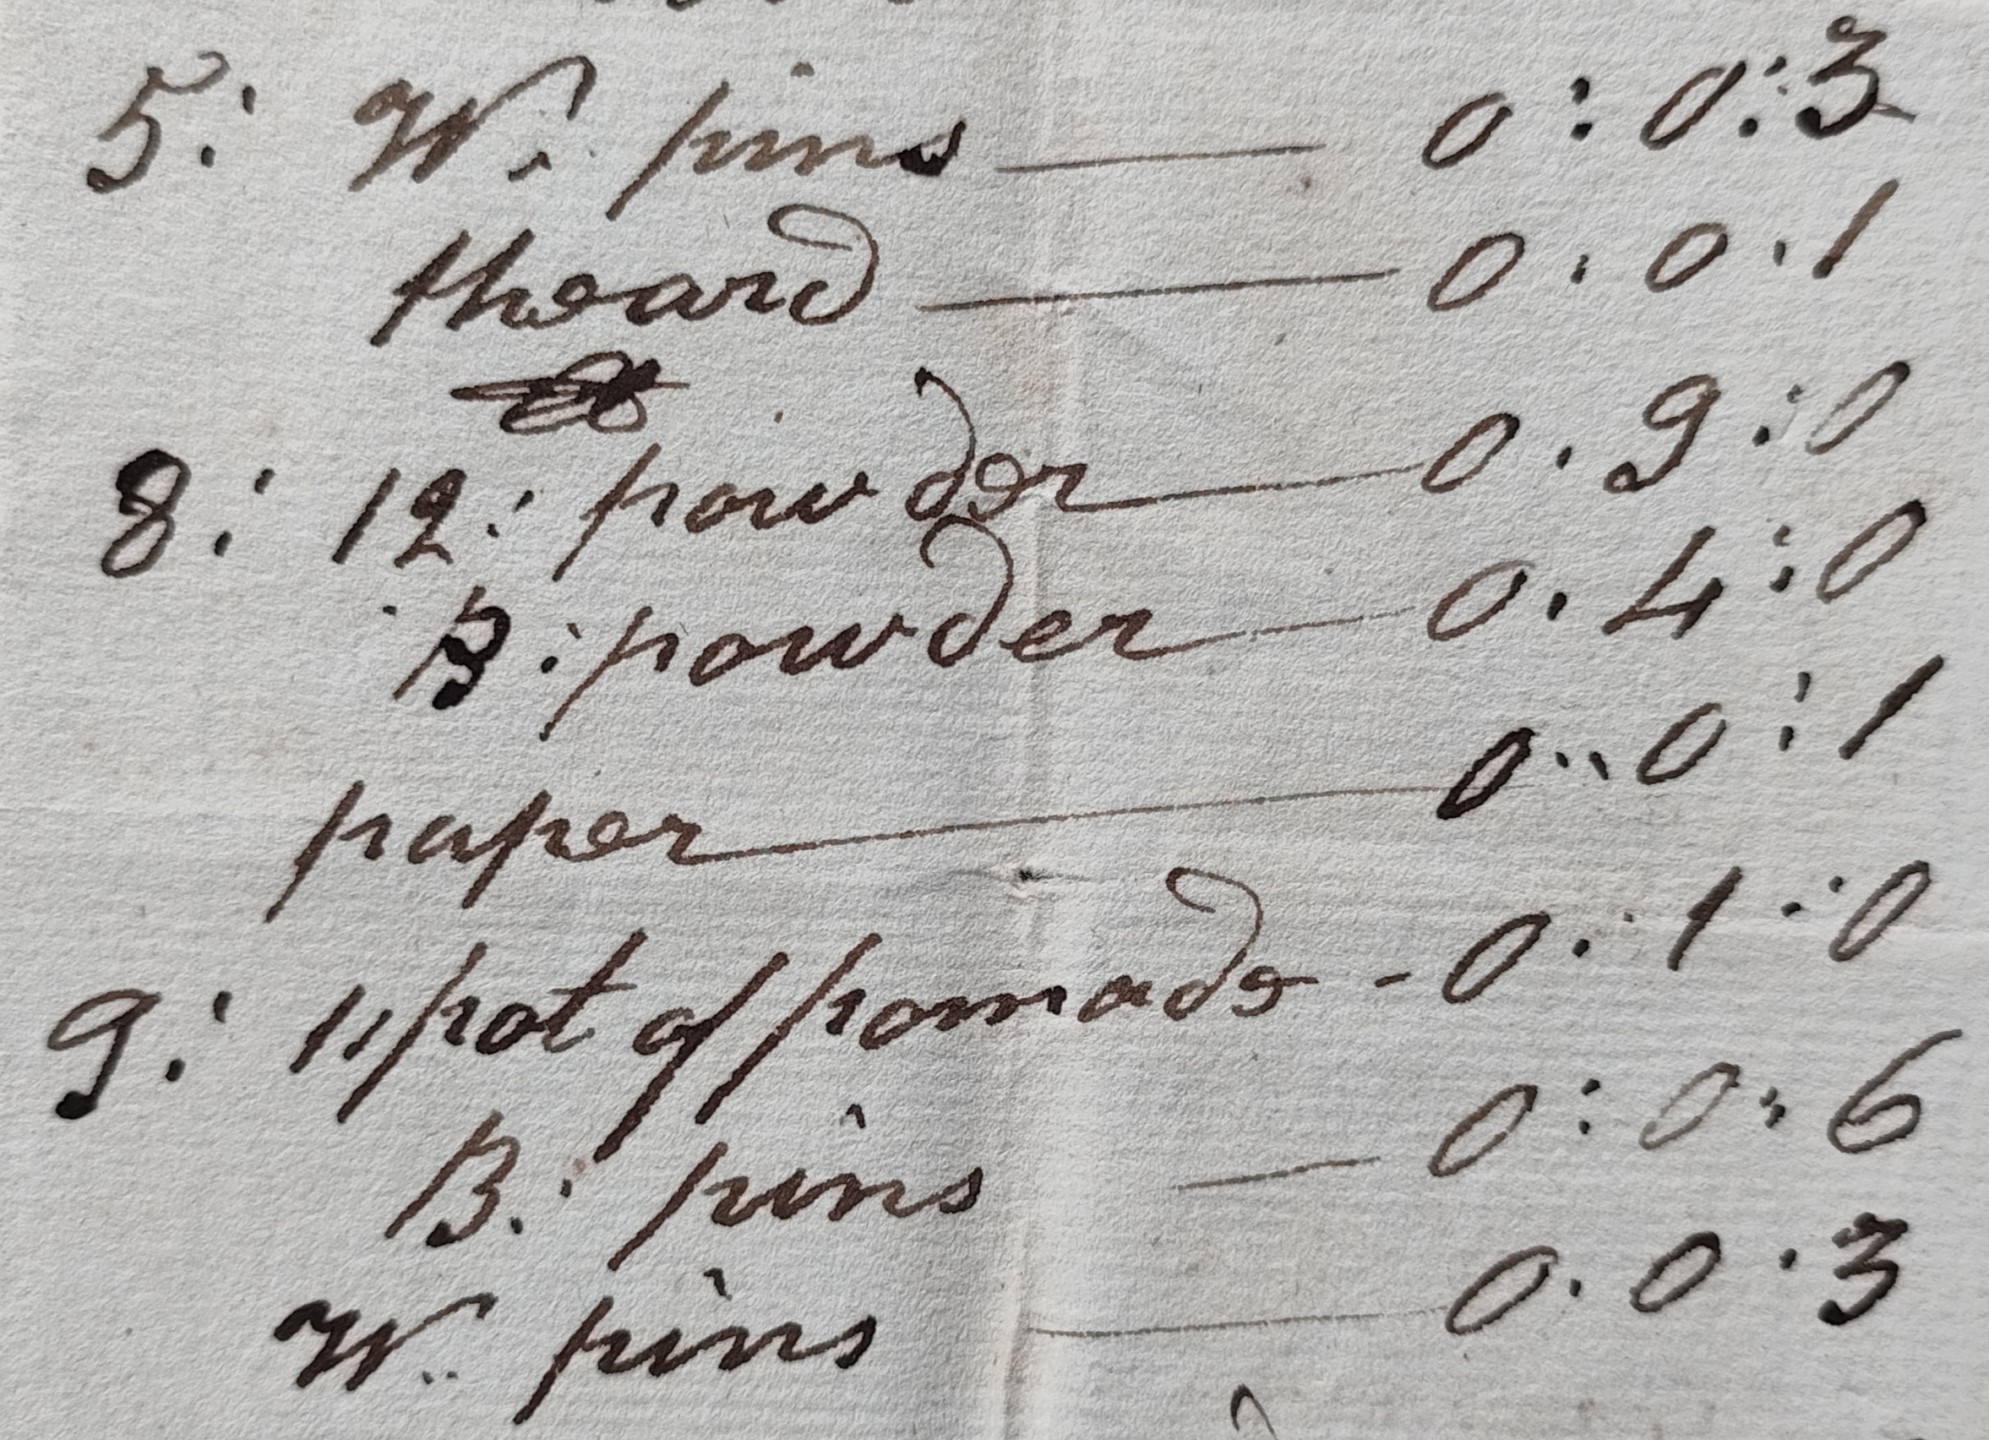 5: W: pins — 0:0:3
theard — 0:0:1
8: 12: powder — 0.9:0
B: powder — 0.4:0
paper — 0..0:1
9: 1 pot of pomade - 0:1:0
B: pins — 0:0:6
W.. pins — 0.0.3